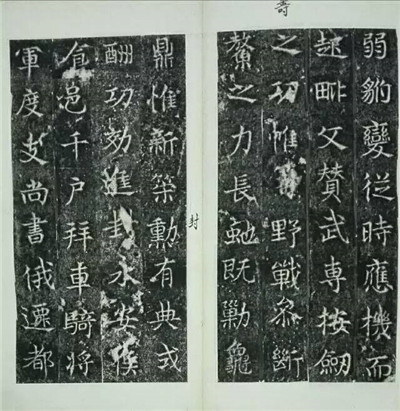 壽
弱豹變從時應機而
毗文贊武專按劒
之功惟野戰叅斷
鰲之力長虵既勦龜
封
鼎惟新策勳有典式
酬功効進封永安侯
食邑千戶拜車騎將
軍度支尚書俄遷都